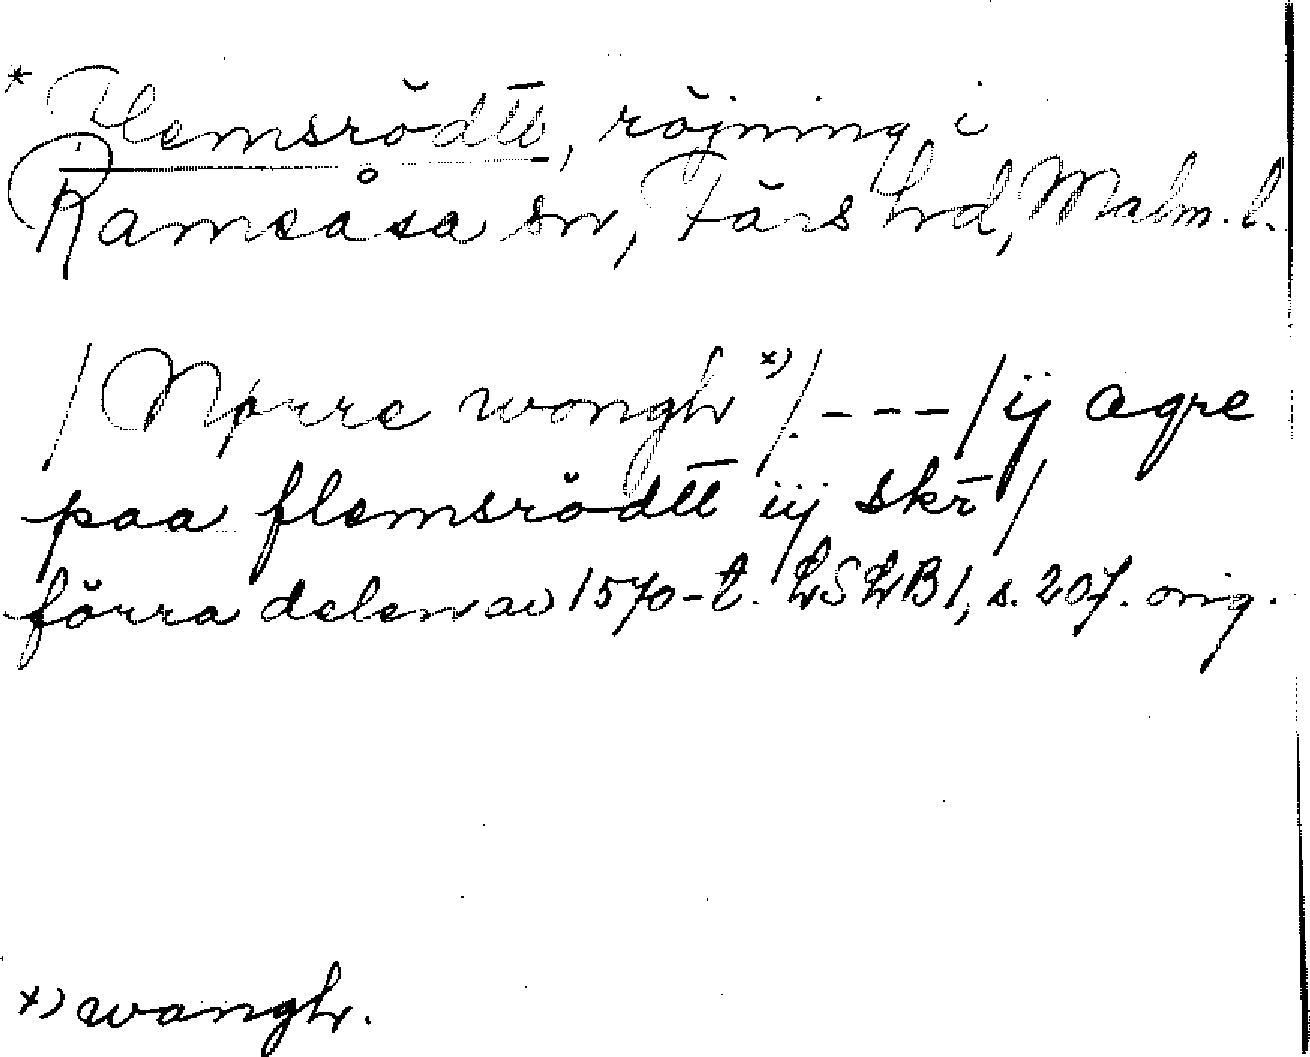 * Flemsrödtt, röjning i
Ramsåsa sn, Färs hd, Malm. l.
/ Nørre wongh *) /. - - - / ij agre
paa flemsrödtt iij skr /
förra delen av 1570-t. LSLB 1, s. 207. orig.
*) wangh.